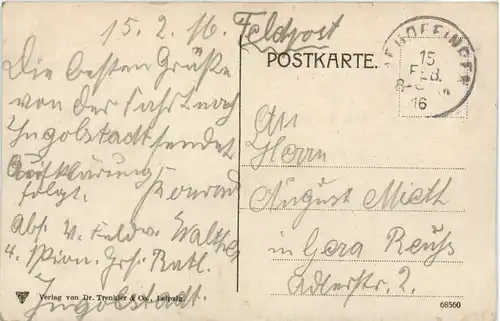 15. 2. 16. Feldpost
Die besten Grüße
von der Fahrt nach
Ingolstadt sendet
Aufklärung
folgt. Konrad
Abs. V. Feldw. Walther
4. Pion. Ers. Batl.
Ingolstadt.
POSTKARTE.
15
FEB.
16
An
Herrn
August Mieth
in Gera Reuß
Adlerstr. 2.
Verlag von Dr. Trenkler & Co., Leipzig.
68560